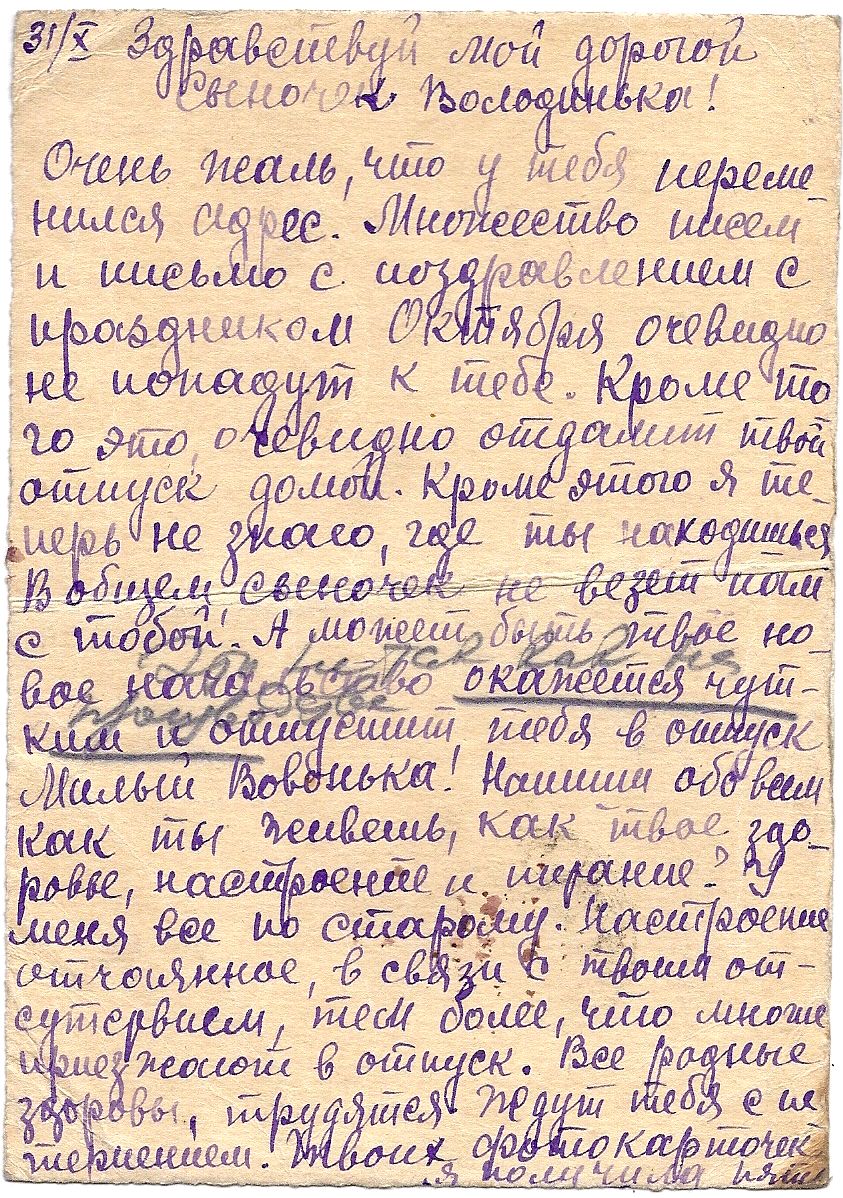 31/X Здравствуй мой дорогой
Сыночек Володинька!
Очень жаль, что у тебя переме-
нился адрес. Множество писем
и письмо с поздравлением с
праздником Октября очевидно
не попадут к тебе. Кроме то
го это, очевидно отдалит твой
отпуск домой. Кроме этого я те-
перь не знаю, где ты находишься
В общем, сыночек не везет нам
с тобой. А может быть твое но-
вое начальство окажется чут-
ким и отпустит, тебя в отпуск
Милый Вовонька! Напиши обо всем
как ты живешь, как твое здо-
ровье, настроение и питание? У
меня все по старому. Настроение
отчаянное, в связи с твоим от-
сутсрвием, тем более, что многие
приезжают в отпуск. Все родные
здоровы, трудятся. Ждут тебя с не
терпением. Твоих фотокарточек
я получила пять